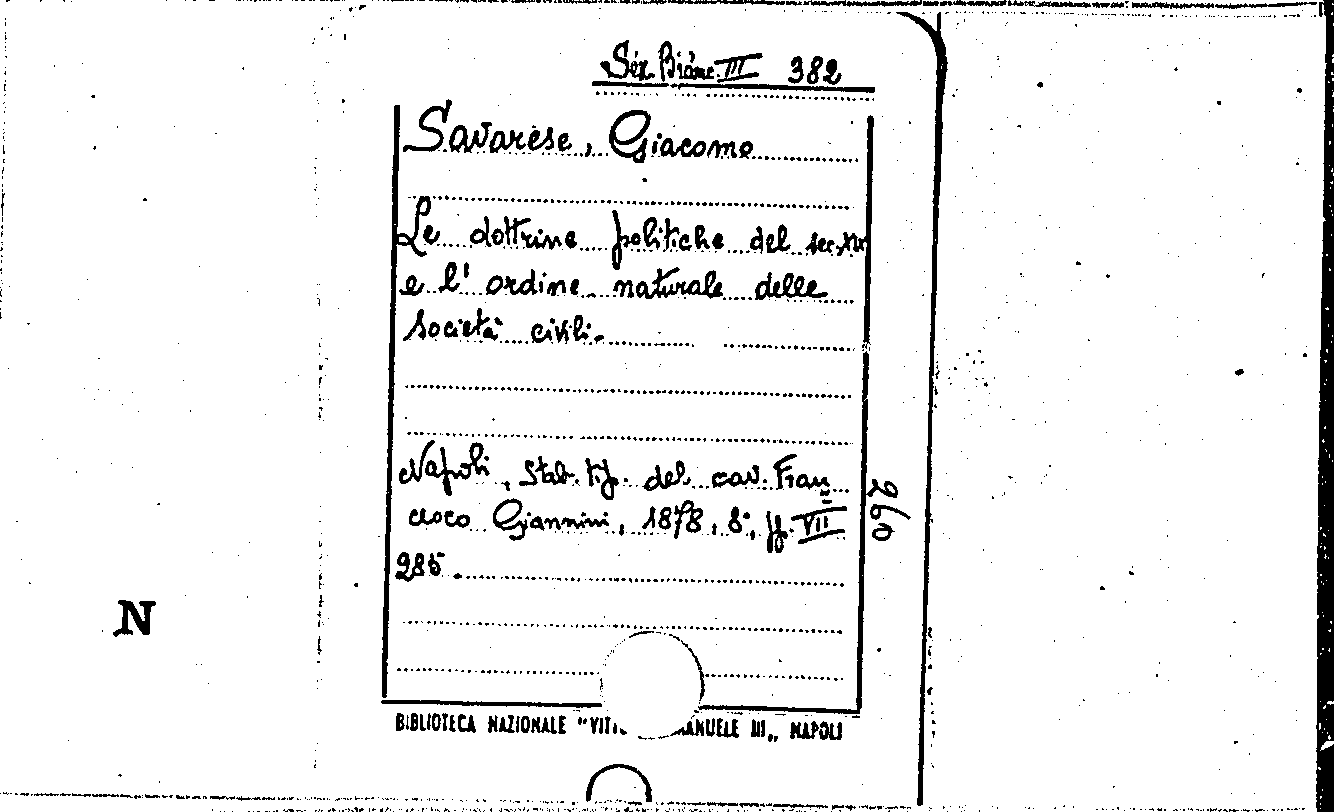 Sez. Bianc. III 382
Savarese, Giacomo
Le dottrine politiche del sec.
e l'ordine naturale delle
società civili.
Napoli, Stab. tip. del cav. Fran=
cesco Giannini, 1878, 8°, pp. VII
285.
260
N
BIBLIOTECA NAZIONALE "VITT ANUELE III„ NAPOLI